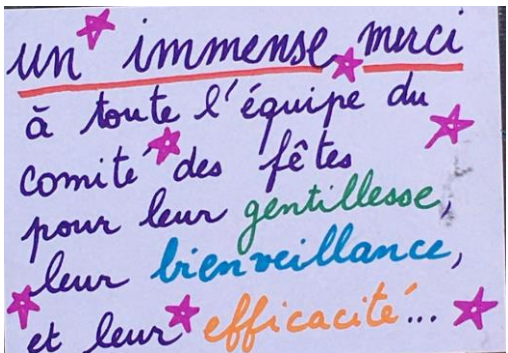 un immense merci
à toute l'équipe du
comité des fêtes
pour leur gentillesse,
leur bienveillance,
et leur efficacité...